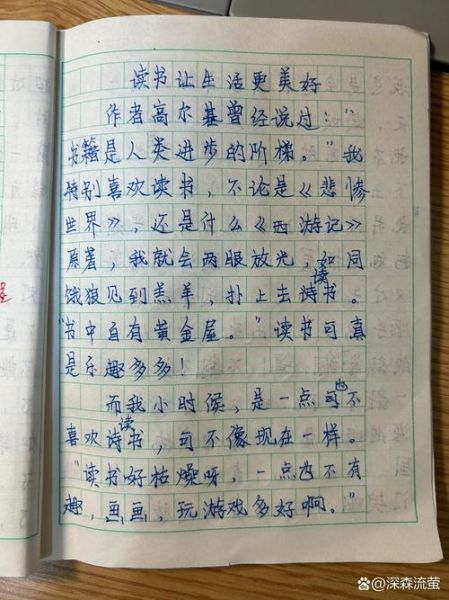 读书让生活更美好
作者高尔基曾经说过:"
书籍是人类进步的阶梯。"我
特别喜欢读书,不论是《悲惨
世界》,还是什么《西游记》
原著,我就会两眼放光,如同
饿狼见到羔羊,扑上去读书。
"书中自有黄金屋。"读书可真
是乐趣多多!
而我小时候,是一点也不
喜欢读书,可不像现在一样。
"读书好枯燥呀,一点也不有
趣,画画,玩游戏多好啊。"
@深森流萤